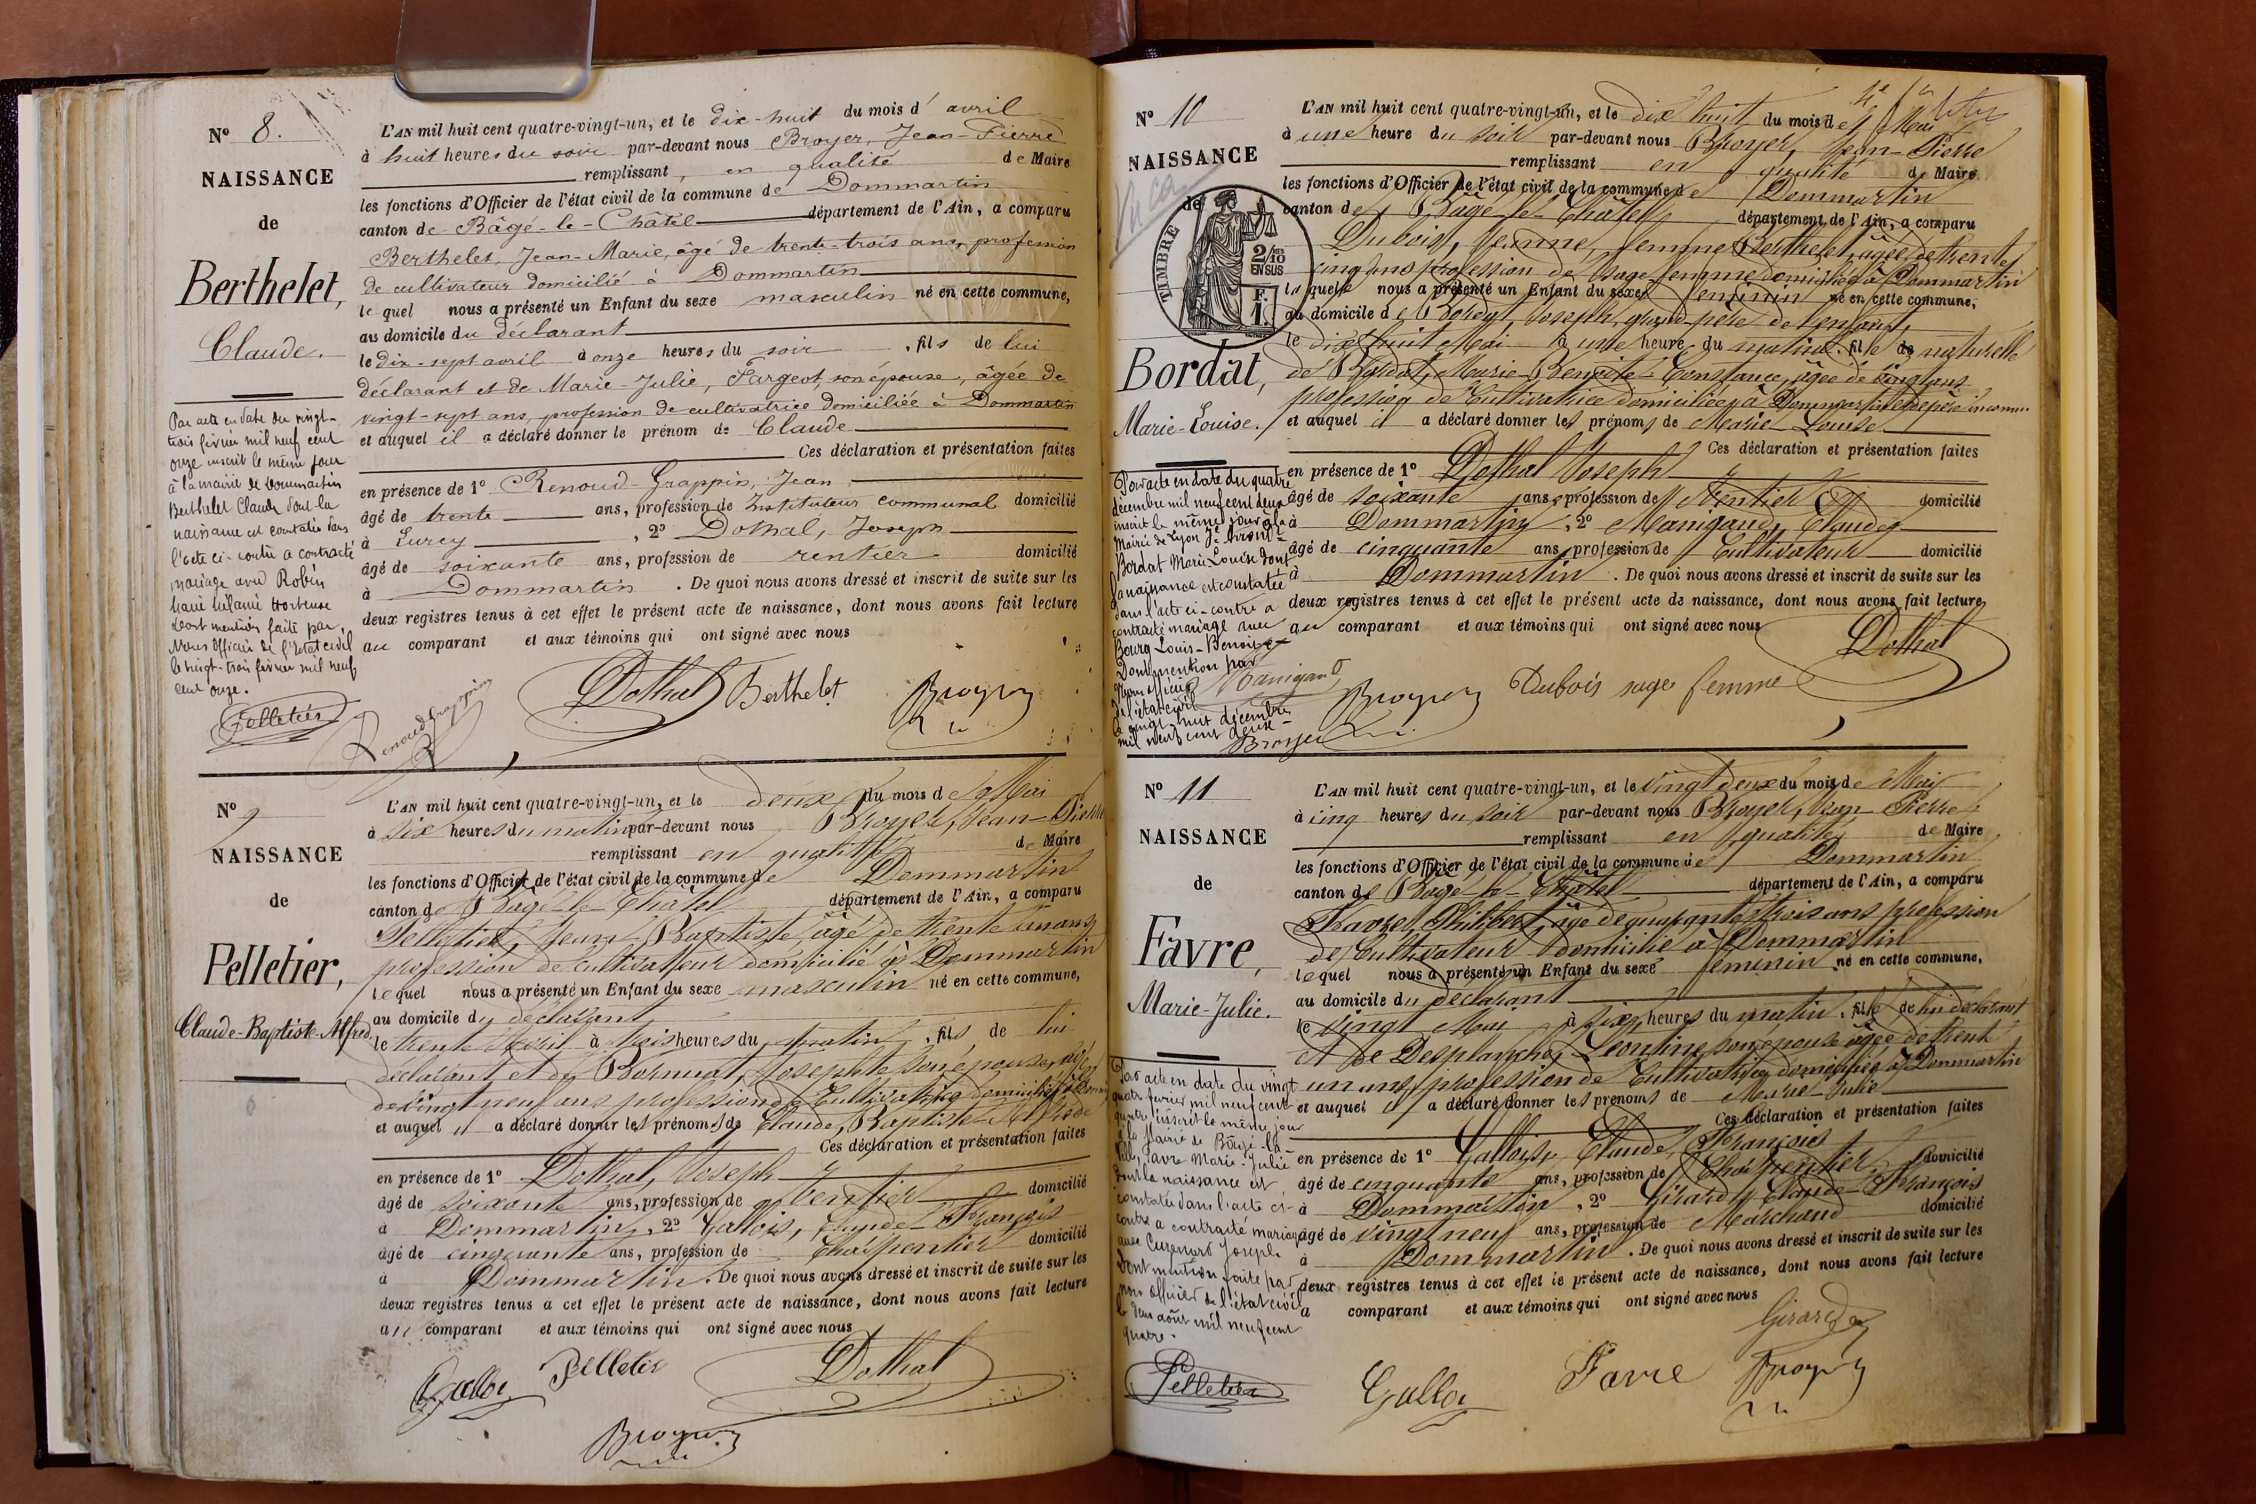 N° 8.
NAISSANCE
de
Berthelet,
Claude.
Par acte en date du vingt-
trois février mil neuf cent
onze inscrit le même jour
à la mairie de Dommartin
Berthelet Claude dont la
naissance est constatée dans
l'acte ci-contre a contracté
mariage avec Robin
Marie Mélanie Hortense
Dont mention faite par
Nous Officier de l'Etat civil
le vingt-trois février mil neuf
cent onze.
Pelletier
L'AN mil huit cent quatre-vingt-un, et le dix-huit du mois d'avril
à huit heures du soir par-devant nous Broyer, Jean-Pierre
remplissant, en qualité de Maire
les fonctions d'Officier de l'état civil de la commune de Dommartin
canton de Bâgé-le-Châtel département de l'Ain, a comparu
Berthelet, Jean-Marie, âgé de trente-trois ans, profession
de cultivateur domicilié à Dommartin
lequel nous a présenté un Enfant du sexe masculin né en cette commune,
au domicile du déclarant
le dix-sept avril à onze heures du soir, fils de lui
déclarant et de Marie-Julie, Fargeot, son épouse, âgée de
vingt-sept ans, profession de cultivatrice domiciliée à Dommartin
et auquel il a déclaré donner le prénom de Claude
Ces déclaration et présentation faites
en présence de 1° Renoud-Grappin, Jean
âgé de trente ans, profession de Instituteur communal domicilié
à Lurcy, 2° Dothal, Joseph
âgé de soixante ans, profession de rentier domicilié
à Dommartin. De quoi nous avons dressé et inscrit de suite sur les
deux registres tenus à cet effet le présent acte de naissance, dont nous avons fait lecture
au comparant et aux témoins qui ont signé avec nous
Renoud Grappin
Dothal Berthelet Broyer
N° 9
NAISSANCE
de
Pelletier,
Claude-Baptiste-Alfred.
L'AN mil huit cent quatre-vingt-un, et le deux du mois de Mai
à six heures du matin par-devant nous Broyer, Jean-Pierre
remplissant en qualité de Maire
les fonctions d'Officier de l'état civil de la commune de Dommartin
canton de Bagé-le-Châtel département de l'Ain, a comparu
Pelletier, Jean Baptiste âgé de trente un ans
profession de cultivateur domicilié à Dommartin
lequel nous a présenté un Enfant du sexe masculin né en cette commune,
au domicile du déclarant
le trente Avril à trois heures du matin, fils de lui
déclarant et de Josephte son épouse, âgée
de vingt neuf ans profession de Cultivatrice domiciliée à
et auquel il a déclaré donner les prénoms de Claude, Baptiste-Alfred
Ces déclaration et présentation faites
en présence de 1° Dothal, Joseph
âgé de soixante ans, profession de rentier domicilié
à Dommartin, 2° Gallois, Claude-François
âgé de cinquante ans, profession de Charpentier domicilié
à Dommartin. De quoi nous avons dressé et inscrit de suite sur les
deux registres tenus à cet effet le présent acte de naissance, dont nous avons fait lecture
au comparant et aux témoins qui ont signé avec nous
Galloi Pelletier Dothal
Broyer
N° 10
NAISSANCE
de
TIMBRE
2/10
EN SUS
F.
1.
Bordat,
Marie-Louise.
Par acte en date du quatre
décembre mil neuf cent deux
inscrit le même jour à la
Mairie de Lyon
Bordat Marie Louise dont
la naissance est constatée
dans l'acte ci-contre a
contracté mariage avec
Bourg Louis-Benoit
Dont mention par
Nous officier
de l'état civil
le vingt huit décembre
mil neuf cent deux
Broyer
L'AN mil huit cent quatre-vingt-un, et le dix huit du mois de Mai
à une heure du soir par-devant nous Broyer, Jean-Pierre
remplissant en qualité de Maire
les fonctions d'Officier de l'état civil de la commune de Dommartin
canton de Bâgé-le-Châtel département de l'Ain, a comparu
Dubois, Jeanne, femme Berthelet, âgée de trente
cinq ans profession de sage femme domiciliée à Dommartin
laquelle nous a présenté un Enfant du sexe féminin né en cette commune,
au domicile de Bordat, Joseph, grand-père de l'enfant,
le dix huit Mai à une heure du matin, fille naturelle
de Bordat, Marie-Benoite-Constance, âgée de vingt ans
profession de Cultivatrice domiciliée à Dommartin et de père inconnu
et auquel il a déclaré donner les prénoms de Marie-Louise
Ces déclaration et présentation faites
en présence de 1° Dothal Joseph
âgé de soixante ans, profession de Rentier domicilié
à Dommartin, 2° Manigand, Claude
âgé de cinquante ans, profession de Cultivateur domicilié
à Dommartin. De quoi nous avons dressé et inscrit de suite sur les
deux registres tenus à cet effet le présent acte de naissance, dont nous avons fait lecture
au comparant et aux témoins qui ont signé avec nous
Dothal
Manigand Broyer Dubois sage femme
N° 11
NAISSANCE
de
Favre,
Marie-Julie.
Par acte en date du vingt
quatre février mil neuf cent
quatre inscrit le même jour
à la Mairie de Bâgé-la-
Ville, Favre Marie-Julie
dont la naissance est
constatée dans l'acte ci-
contre a contracté mariage
avec Joseph
Dont mention faite par
nous officier de l'état civil
le deux août mil neuf cent
quatre.
Pelletier
L'AN mil huit cent quatre-vingt-un, et le vingt deux du mois de Mai
à cinq heures du soir par-devant nous Broyer, Jean-Pierre
remplissant en qualité de Maire
les fonctions d'Officier de l'état civil de la commune de Dommartin
canton de Bâgé-le-Châtel département de l'Ain, a comparu
Favre, Philibert, âgé de quarante trois ans profession
de Cultivateur domicilié à Dommartin
lequel nous a présenté un Enfant du sexe féminin né en cette commune,
au domicile du déclarant
le vingt Mai à six heures du matin, fille de lui déclarant
et de Desplanche, Léontine, son épouse âgée de trente
un ans, profession de Cultivatrice domiciliée à Dommartin
et auquel il a déclaré donner les prénoms de Marie-Julie
Ces déclaration et présentation faites
en présence de 1° Gallois, Claude, François
âgé de cinquante ans, profession de Charpentier domicilié
à Dommartin, 2° Girard, Claude-François
âgé de vingt neuf ans, profession de Marchand domicilié
à Dommartin. De quoi nous avons dressé et inscrit de suite sur les
deux registres tenus à cet effet le présent acte de naissance, dont nous avons fait lecture
a comparant et aux témoins qui ont signé avec nous
Girard
Galloi Favre Broyer